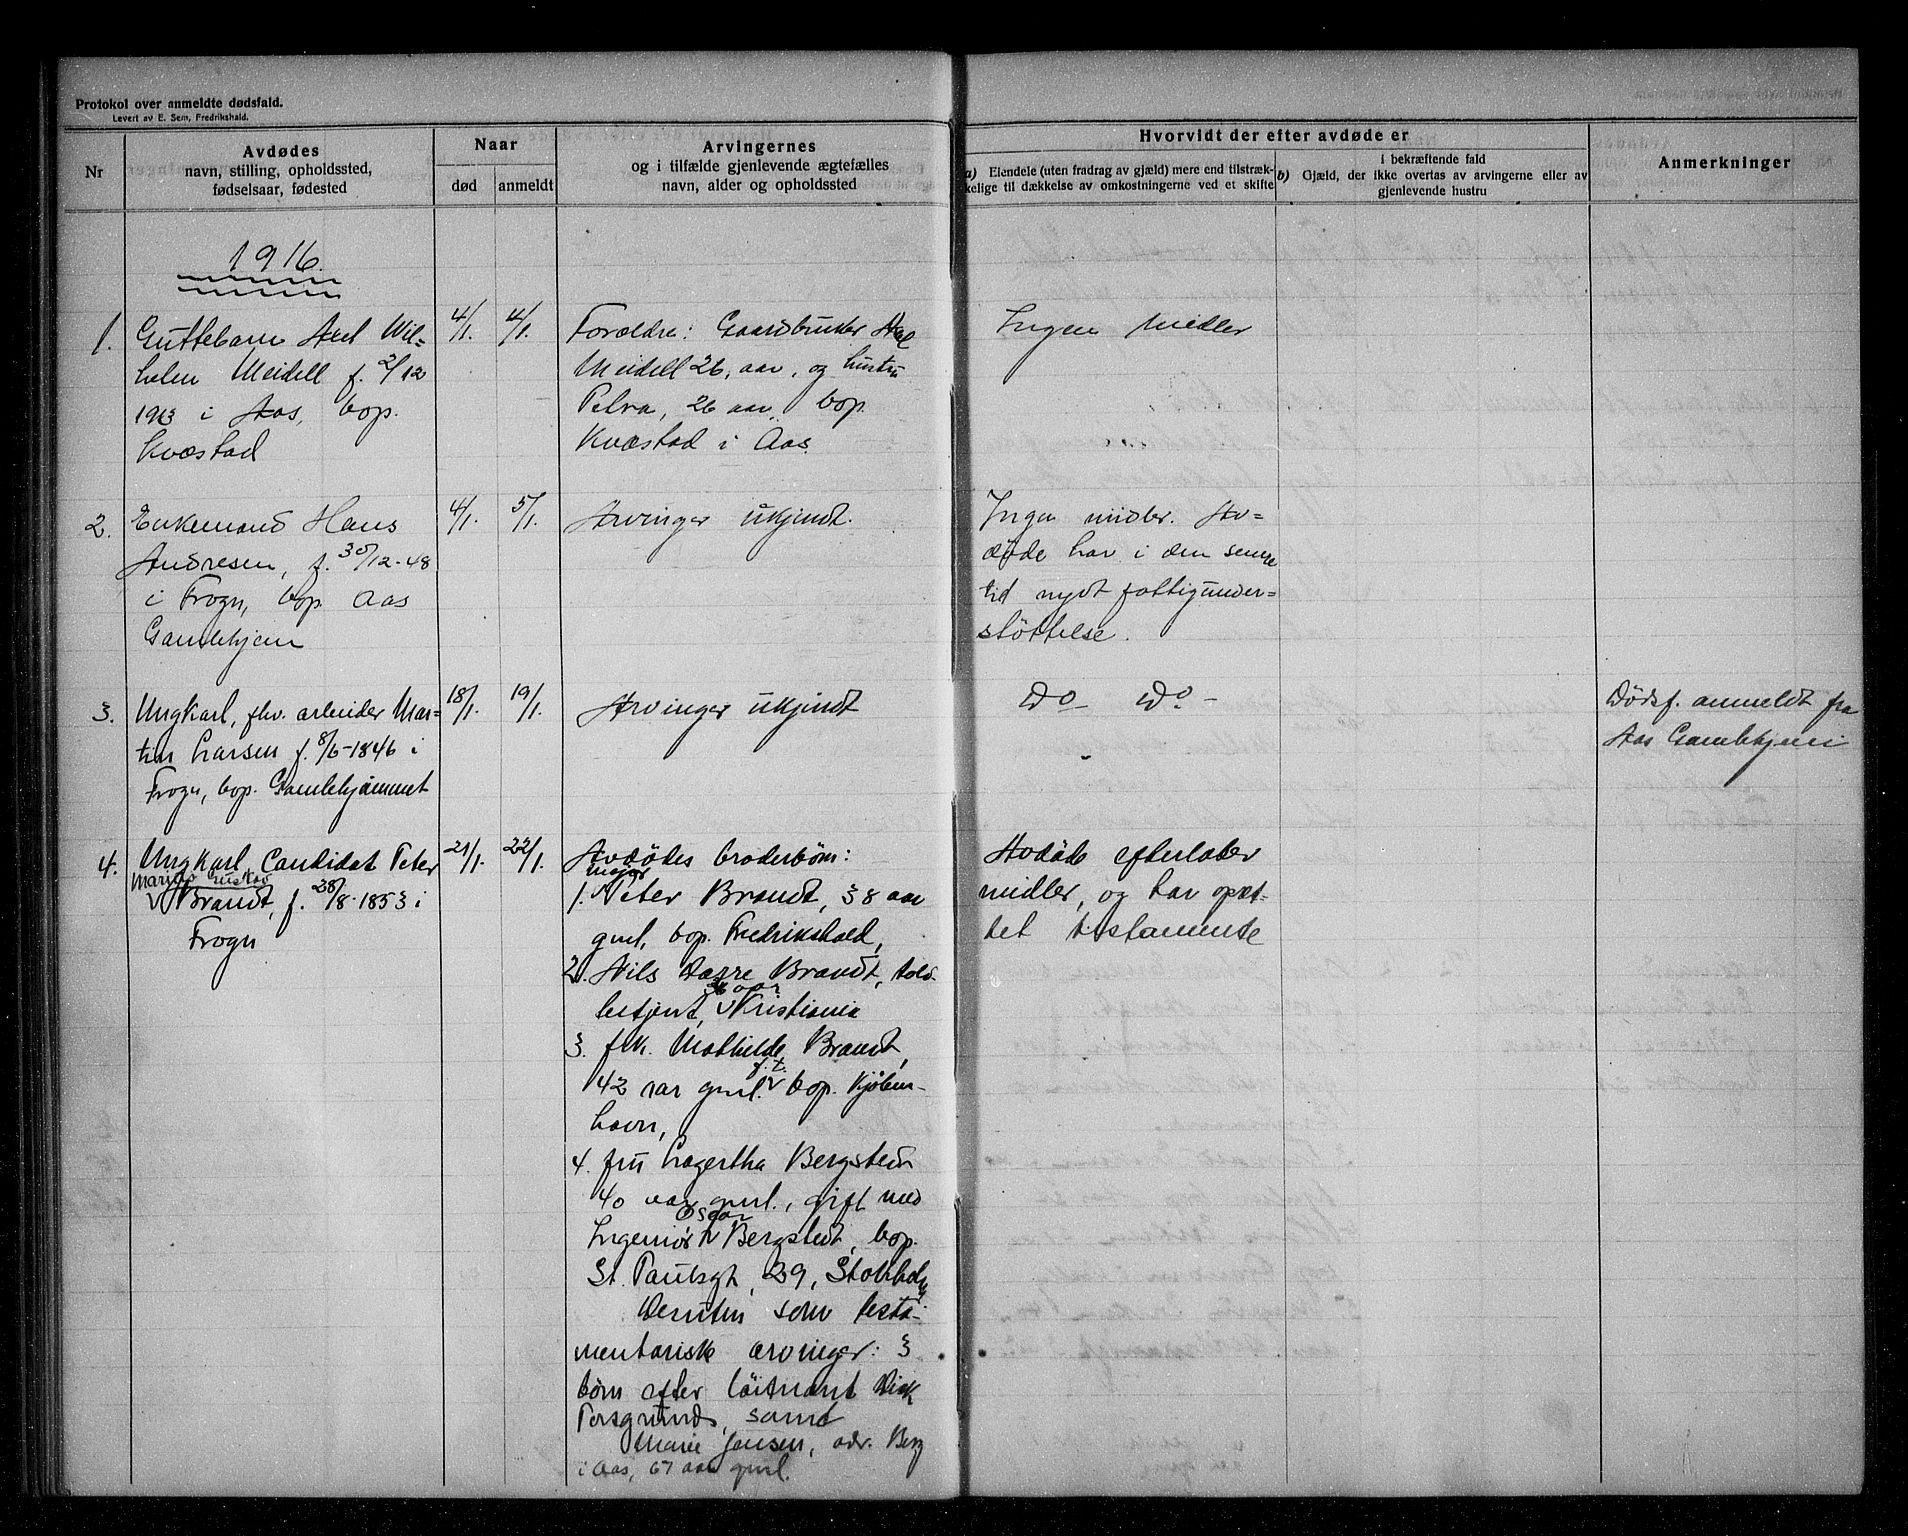 Protokol over anmeldte dødsfald.
Levert av E. Sem, Fredrikshald.
Nr
Avdødes
navn, stilling, opholdssted,
fødselsaar, fødested
Naar
død
anmeldt
Arvingernes
og i tilfælde gjenlevende ægtefælles
navn, alder og opholdssted
Hvorvidt der efter avdøde er
a) Eiendele (uten fradrag av gjæld) mere end tilstræk-
kelige til dækkelse av omkostningerne ved et skifte
i bekræftende fald
b) Gjæld, der ikke overtas av arvingerne eller av
gjenlevende hustru
Anmerkninger
1916.
1.
Guttebarn Axel Wil=
helm Meidell f. 2/12
1913 i Aas, bop.
Kvæstad
4/1.
4/1.
Forældre: Gaardbruker Axel
Meidell 26, aar, og hustru
Petra, 26 aar, bop.
Kvæstad i Aas
Ingen midler
2.
Enkemand Hans
Andresen, f. 30/12-48
i Frogn, bop. Aas
Gamlehjem
4/1.
5/1.
Arvinger ukjendt.
Ingen midler. Av=
døde har i den senere
tid nydt fattigunder=
støttelse.
3.
Ungkarl, fhv. arbeider Mar=
tin Larsen f. 8/6-1846 i
Frogn, bop. Gamlehjemmet
18/1.
19/1.
Arvinger ukjendt
Do Do -
Dødsf. anmeldt fra
Aas Gamlehjem
4.
Ungkarl, Candidat Peter
Marius Gustav
Brandt, f. 28/8-1853 i
Frogn
21/1.
22/1.
Avdødes broderbørn:
major
1. Peter Brandt, 38 aar
gml, bop. Fredrikshald,
2. Nils Darre Brandt, told-
36 aar
betjent, Kristiania
3. frk. Mathilde Brandt,
f.t.
42 aar gml. bop. Kjøben-
havn,
4. fru Lagertha Bergstedt
40 aar gml., gift med
Oscar
Ingeniør Bergstedt, bop.
St. Paulsgt, 29, Stokholm
Desuten som testa-
mentarisk arvinger: 3
børn efter løitnant Dick
Forsgrund, samt
Marie Jansen, adr. Berg
i Aas, 67 aar gml.
Avdøde efterlater
midler, og har opret-
tet testamente